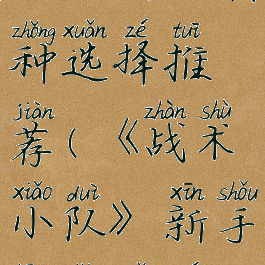 zhǒng xuǎn zé tuī
种选择推
jiàn zhàn shù
荐(《战术
xiǎo duì xīn shǒu
小队》 新手